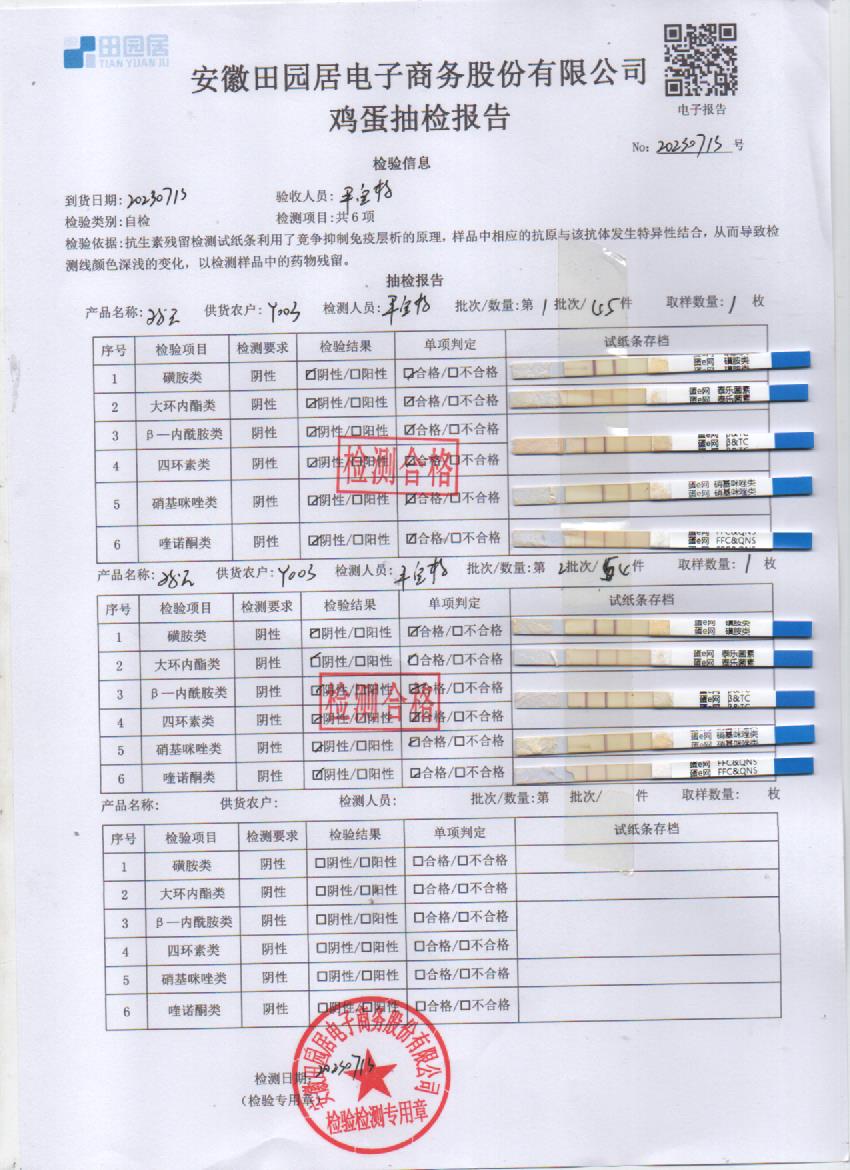 田园居
TIAN YUAN JU
安徽田园居电子商务股份有限公司
鸡蛋抽检报告
电子报告
No: 20230713 号
检验信息
到货日期: 20230713 验收人员:
检验类别:自检 检测项目:共6项
检验依据:抗生素残留检测试纸条利用了竞争抑制免疫层析的原理，样品中相应的抗原与该抗体发生特异性结合，从而导致检
测线颜色深浅的变化，以检测样品中的药物残留。
抽检报告
产品名称: 供货农户: Y003 检测人员: 批次/数量:第 1 批次/ 件 取样数量: 1 枚
序号 检验项目 检测要求 检验结果 单项判定 试纸条存档
1 磺胺类 阴性 ☑阴性/☐阳性 ☑合格/☐不合格 蛋e网 磺胺类
2 大环内酯类 阴性 ☑阴性/☐阳性 ☑合格/☐不合格 蛋e网 泰乐菌素
3 β—内酰胺类 阴性 ☑阴性/☐阳性 ☑合格/☐不合格 蛋e网 β&TC
4 四环素类 阴性 ☑阴性/☐阳性 ☑合格/☐不合格
检测合格
5 硝基咪唑类 阴性 ☑阴性/☐阳性 ☑合格/☐不合格 蛋e网 硝基咪唑类
6 喹诺酮类 阴性 ☑阴性/☐阳性 ☑合格/☐不合格 蛋e网 FFC&QNS
产品名称: 供货农户: Y003 检测人员: 批次/数量:第 2 批次/ 件 取样数量: 1 枚
序号 检验项目 检测要求 检验结果 单项判定 试纸条存档
1 磺胺类 阴性 ☑阴性/☐阳性 ☑合格/☐不合格 蛋e网 磺胺类
2 大环内酯类 阴性 ☑阴性/☐阳性 ☑合格/☐不合格 蛋e网 泰乐菌素
3 β—内酰胺类 阴性 ☑阴性/☐阳性 ☑合格/☐不合格 蛋e网 β&TC
检测合格
4 四环素类 阴性 ☑阴性/☐阳性 ☑合格/☐不合格
5 硝基咪唑类 阴性 ☑阴性/☐阳性 ☑合格/☐不合格 蛋e网 硝基咪唑类
6 喹诺酮类 阴性 ☑阴性/☐阳性 ☑合格/☐不合格 蛋e网 FFC&QNS
产品名称: 供货农户: 检测人员: 批次/数量:第 批次/ 件 取样数量: 枚
序号 检验项目 检测要求 检验结果 单项判定 试纸条存档
1 磺胺类 阴性 ☐阴性/☐阳性 ☐合格/☐不合格
2 大环内酯类 阴性 ☐阴性/☐阳性 ☐合格/☐不合格
3 β—内酰胺类 阴性 ☐阴性/☐阳性 ☐合格/☐不合格
4 四环素类 阴性 ☐阴性/☐阳性 ☐合格/☐不合格
5 硝基咪唑类 阴性 ☐阴性/☐阳性 ☐合格/☐不合格
6 喹诺酮类 阴性 ☐阴性/☐阳性 ☐合格/☐不合格
安徽田园居电子商务股份有限公司
检测日期: 20230713
（检验专用章）
检验检测专用章